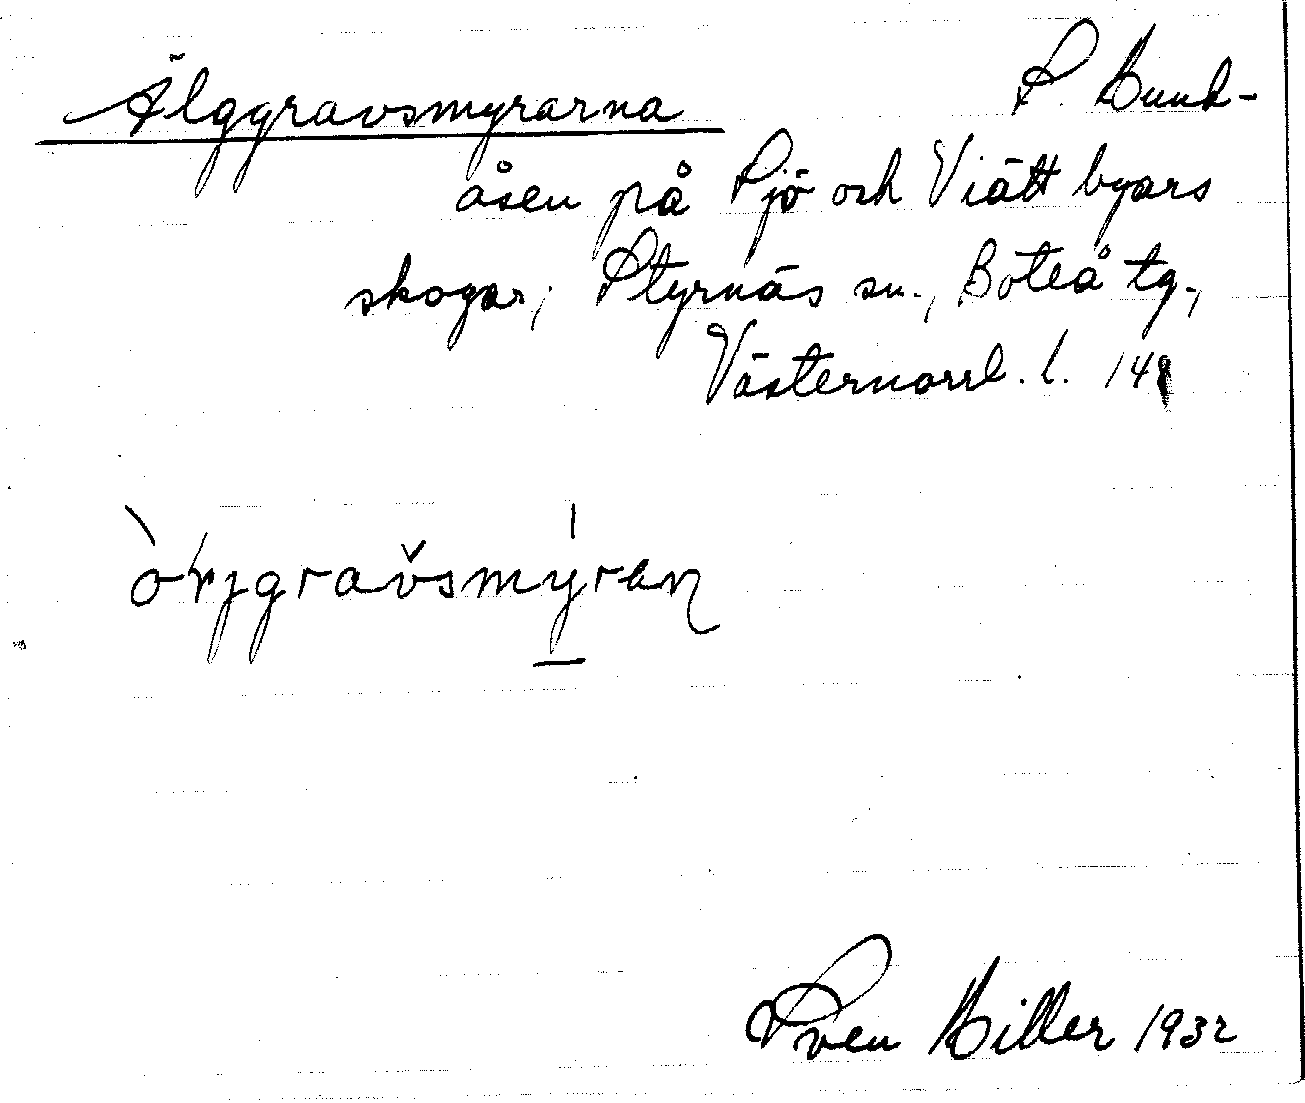 Älggravsmyrarna S. Hund-
åsen på Sjö och Viätt byars
skogar, Styrnäs sn., Boteå tg.,
Västernorrl. l. 141
Sven Hiller 1932